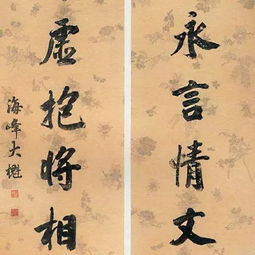 永言情文
虚抱将相
海峰大櫆